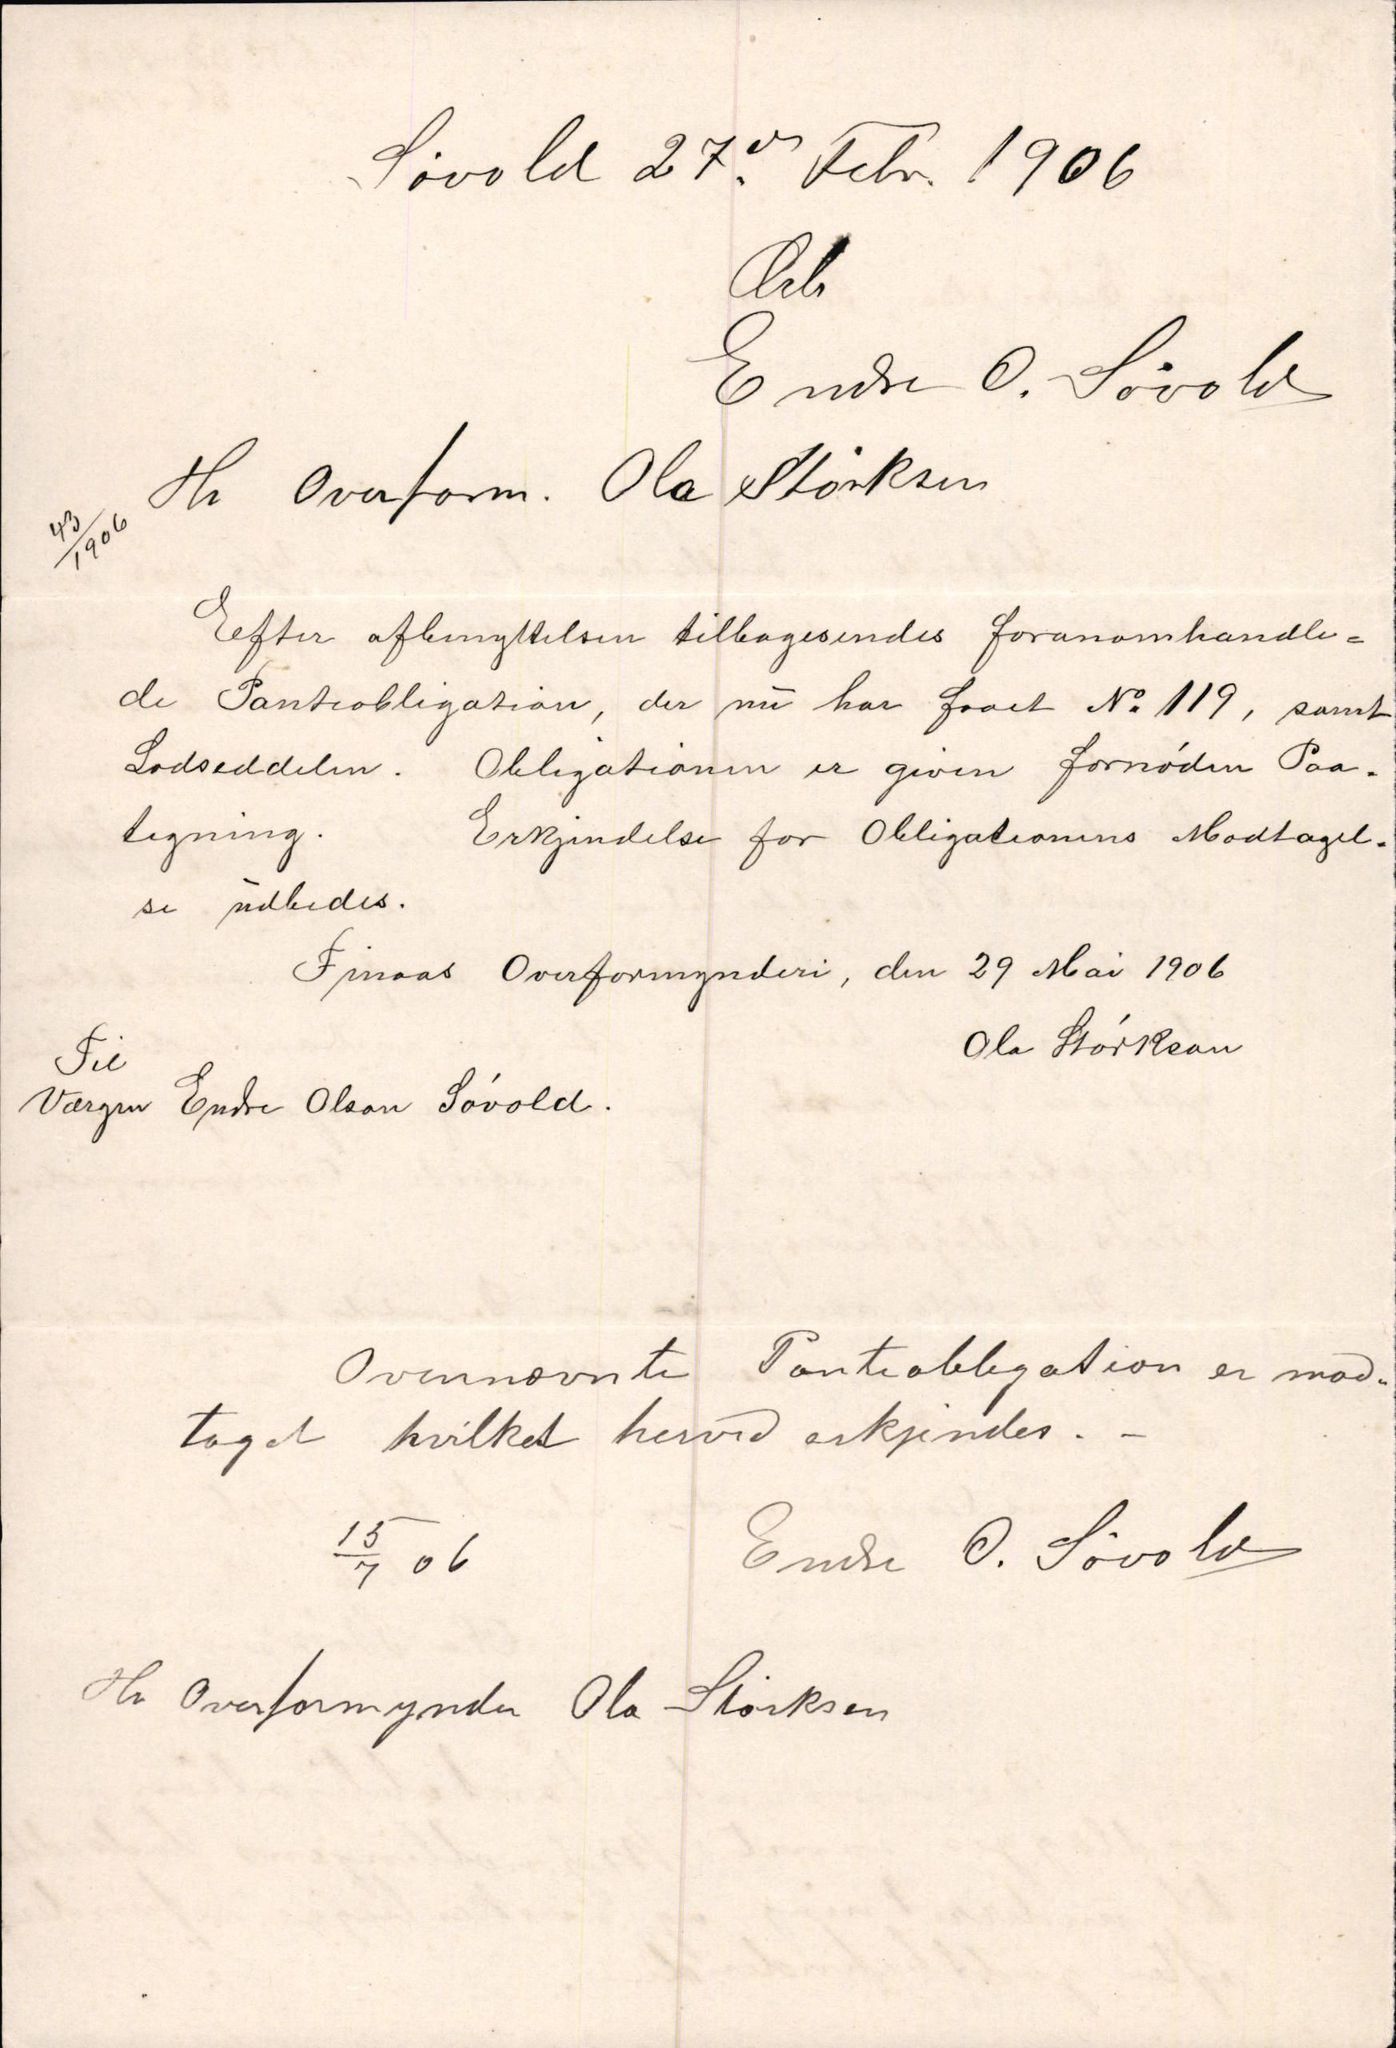 Søvold 27de Febr. 1906
Ærb
Endre O. Søvold
Hr Overform. Ola Störksen
43/1906
Eefter afbenyttelsen tilbagesendes foranomhandle=
de Panteobligation, der nū har faaet No. 119, samt
Lodseddelen. Obligationen er given fornøden Paa-
tegning. Erkjendelse for Obligationens Modtagel-
se ūdbedes.
Finaas Overformynderi, den 29 Mai 1906
Ola Störkson
Til
Værgen Endre Olson Sövold.
Ovennævnte Panteobligation er mod-
taget hvilket herved erkjendes. -
15/7 06
Endre O. Søvold
Hr Overformynder Ola Størksen